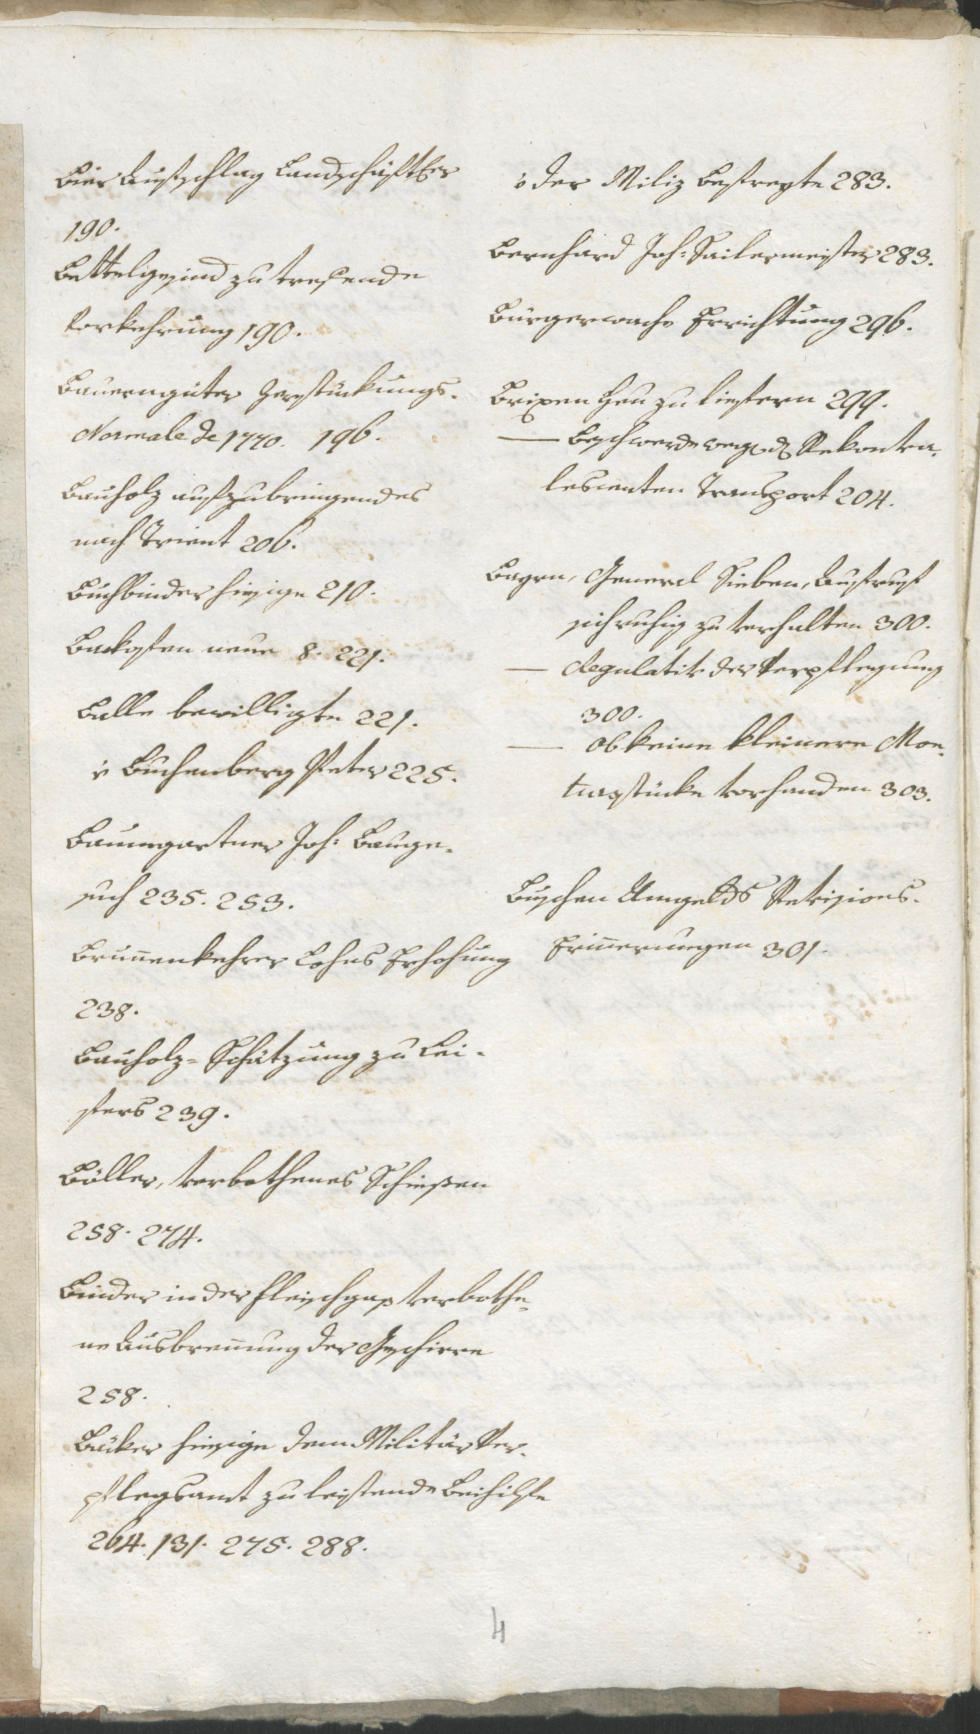 Bier Aufschlag Landschäftler
190.
Bettelgesind zu trefende
Vorkehrung 190.
Bauerngüter Zerstückungs-
Normale de 1770. 196.
Bauholz aufzubringendes
nach Trient 206.
Buchbinder hiesige 210.
Baukosten neue 8. 221.
Balle bewilligte 221.
v Buchenberg Peter 225.
Baumgartner Joh: Bauge-
such 235. 253.
Brunnenkehrer Lohns Erhöhung
238.
Bauholz-Schätzung zu Lei-
fers 239.
Böller, verbothenes Schießen
258. 274.
Binder in der Fleischgaß verbothe-
ne Ausbrennung der Geschirre
258.
Bäcker hiesige dem Militär Ver-
pflegsamt zu leistende Beihilfe
264. 131. 275. 288.
v der Miliz Befreyte 283.
Bernhard Joh: Sailermeister 283.
Bürgerwache Errichtung 296.
Brixen Heu zu liefern 299.
— Beschwerde weg. d. Rekonva-
lescenten Transport 204.
Bayrn, General Sieben, Aufruf
sich ruhig zu verhalten 300.
— Regulativ der Verpflegung
300.
— Ob keine kleinere Mon-
turstücke vorhanden 303.
Buschen Umgelds Revisions-
Erinnerungen 301.
4